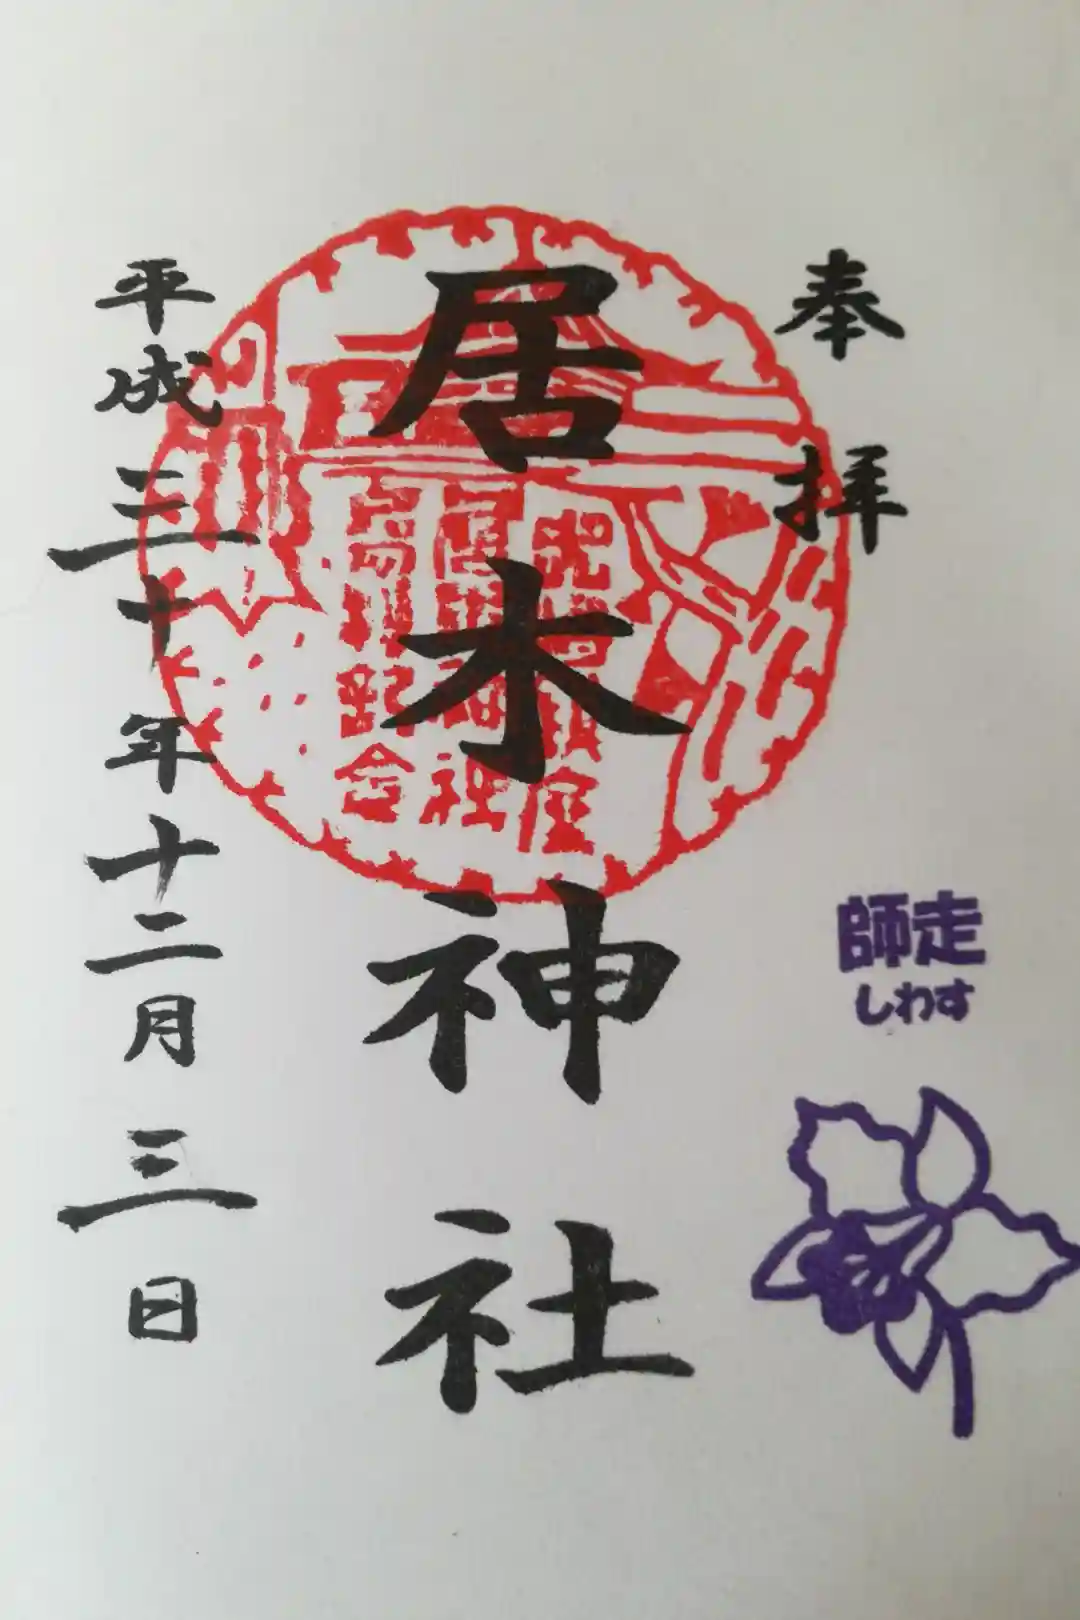 奉拝
居木神社
平成三十年十二月三日
師走
しわす